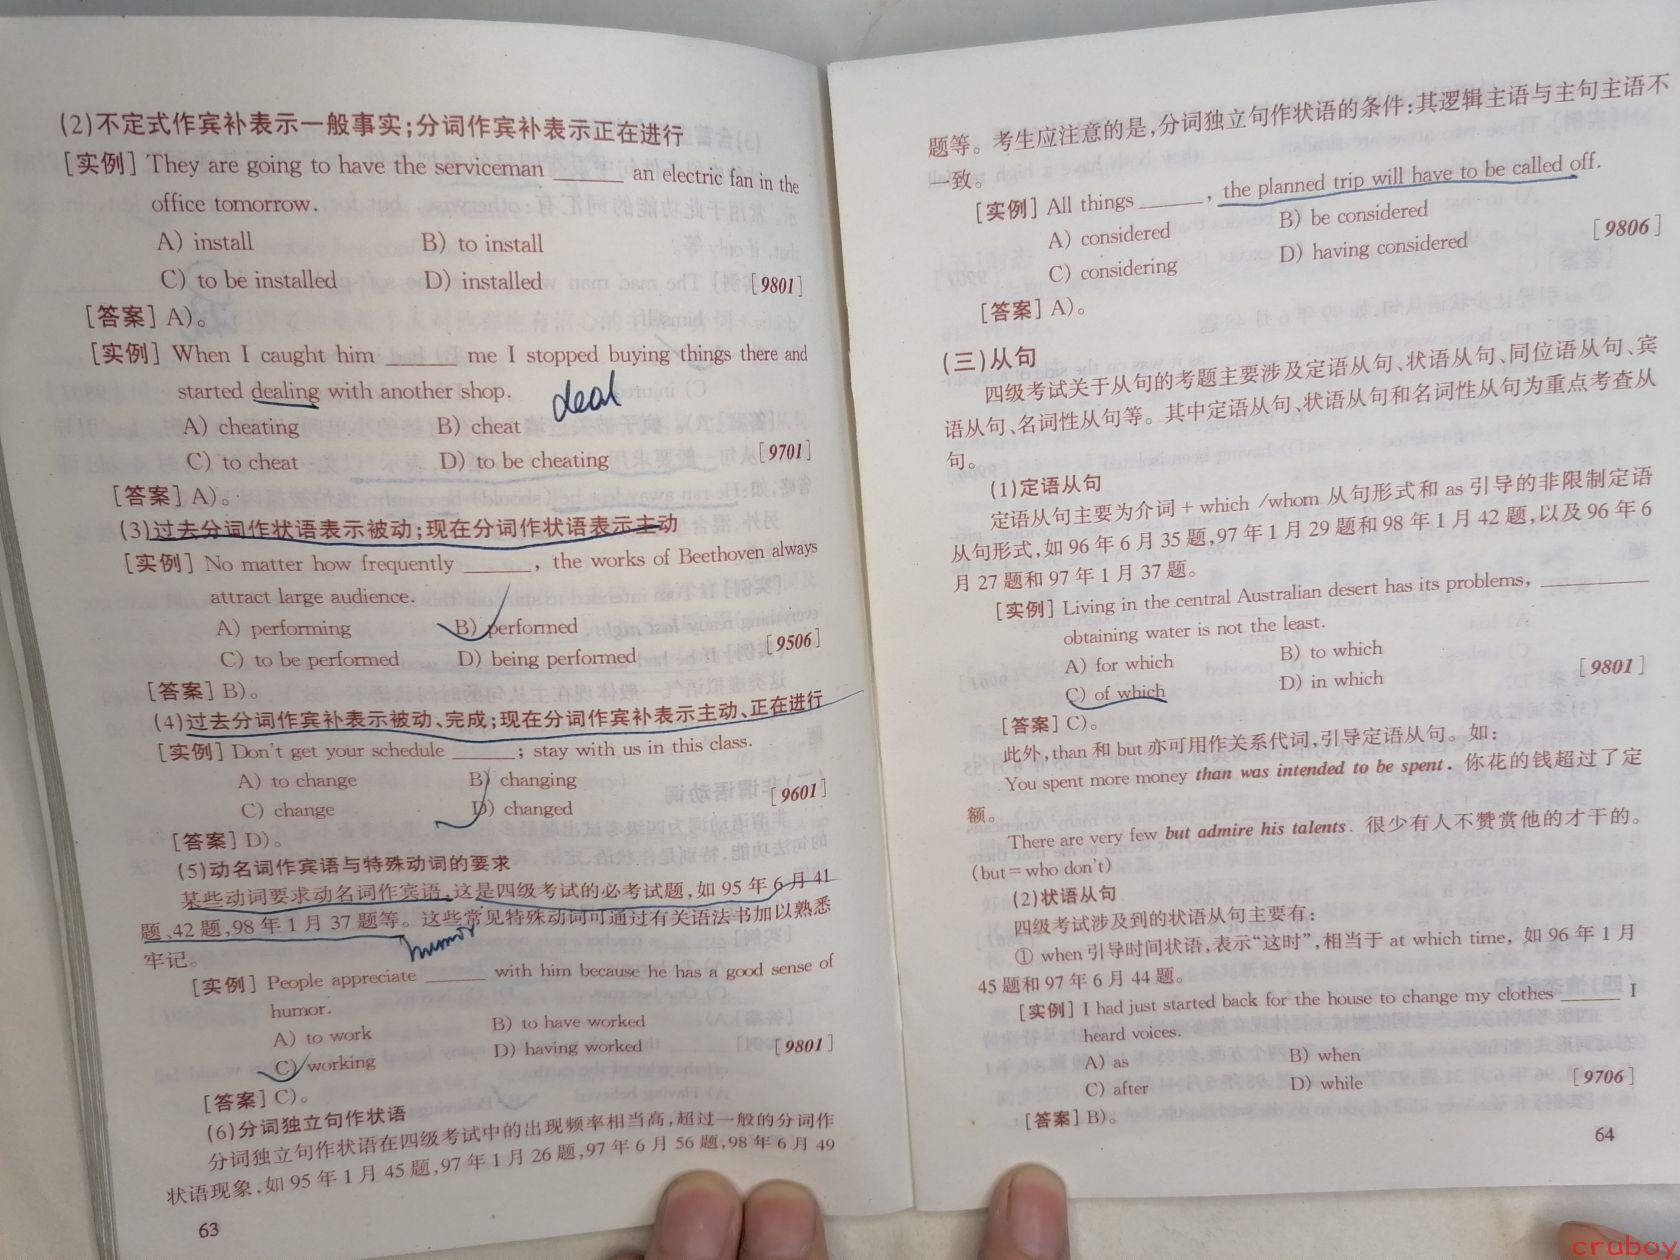 (2)不定式作宾补表示一般事实;分词作宾补表示正在进行
[实例] They are going to have the serviceman ______ an electric fan in the
office tomorrow.
A) install B) to install
C) to be installed D) installed [9801]
[答案] A)。
[实例] When I caught him ______ me I stopped buying things there and
started dealing with another shop.
deal
A) cheating B) cheat
C) to cheat D) to be cheating [9701]
[答案] A)。
(3)过去分词作状语表示被动;现在分词作状语表示主动
[实例] No matter how frequently ______, the works of Beethoven always
attract large audience.
A) performing B) performed
C) to be performed D) being performed [9506]
[答案] B)。
(4)过去分词作宾补表示被动、完成;现在分词作宾补表示主动、正在进行
[实例] Don't get your schedule ______; stay with us in this class.
A) to change B) changing
C) change D) changed [9601]
[答案] D)。
(5)动名词作宾语与特殊动词的要求
某些动词要求动名词作宾语,这是四级考试的必考试题,如 95 年 6 月 41
题、42 题,98 年 1 月 37 题等。这些常见特殊动词可通过有关语法书加以熟悉
牢记。
humor
[实例] People appreciate ______ with him because he has a good sense of
humor.
A) to work B) to have worked
C) working D) having worked [9801]
[答案] C)。
(6)分词独立句作状语
分词独立句作状语在四级考试中的出现频率相当高,超过一般的分词作
状语现象,如 95 年 1 月 45 题,97 年 1 月 26 题,97 年 6 月 56 题,98 年 6 月 49
63
题等。考生应注意的是,分词独立句作状语的条件:其逻辑主语与主句主语不
一致。
[实例] All things ______, the planned trip will have to be called off.
A) considered B) be considered
C) considering D) having considered [9806]
[答案] A)。
(三)从句
四级考试关于从句的考题主要涉及定语从句、状语从句、同位语从句、宾
语从句、名词性从句等。其中定语从句、状语从句和名词性从句为重点考查从
句。
(1)定语从句
定语从句主要为介词 + which /whom 从句形式和 as 引导的非限制定语
从句形式,如 96 年 6 月 35 题,97 年 1 月 29 题和 98 年 1 月 42 题,以及 96 年 6
月 27 题和 97 年 1 月 37 题。
[实例] Living in the central Australian desert has its problems, ______
obtaining water is not the least.
A) for which B) to which
C) of which D) in which [9801]
[答案] C)。
此外,than 和 but 亦可用作关系代词,引导定语从句。如:
You spent more money than was intended to be spent. 你花的钱超过了定
额。
There are very few but admire his talents. 很少有人不赞赏他的才干的。
(but = who don't)
(2)状语从句
四级考试涉及到的状语从句主要有:
① when 引导时间状语,表示“这时”,相当于 at which time, 如 96 年 1 月
45 题和 97 年 6 月 44 题。
[实例] I had just started back for the house to change my clothes ______ I
heard voices.
A) as B) when
C) after D) while [9706]
[答案] B)。
64
cruboy